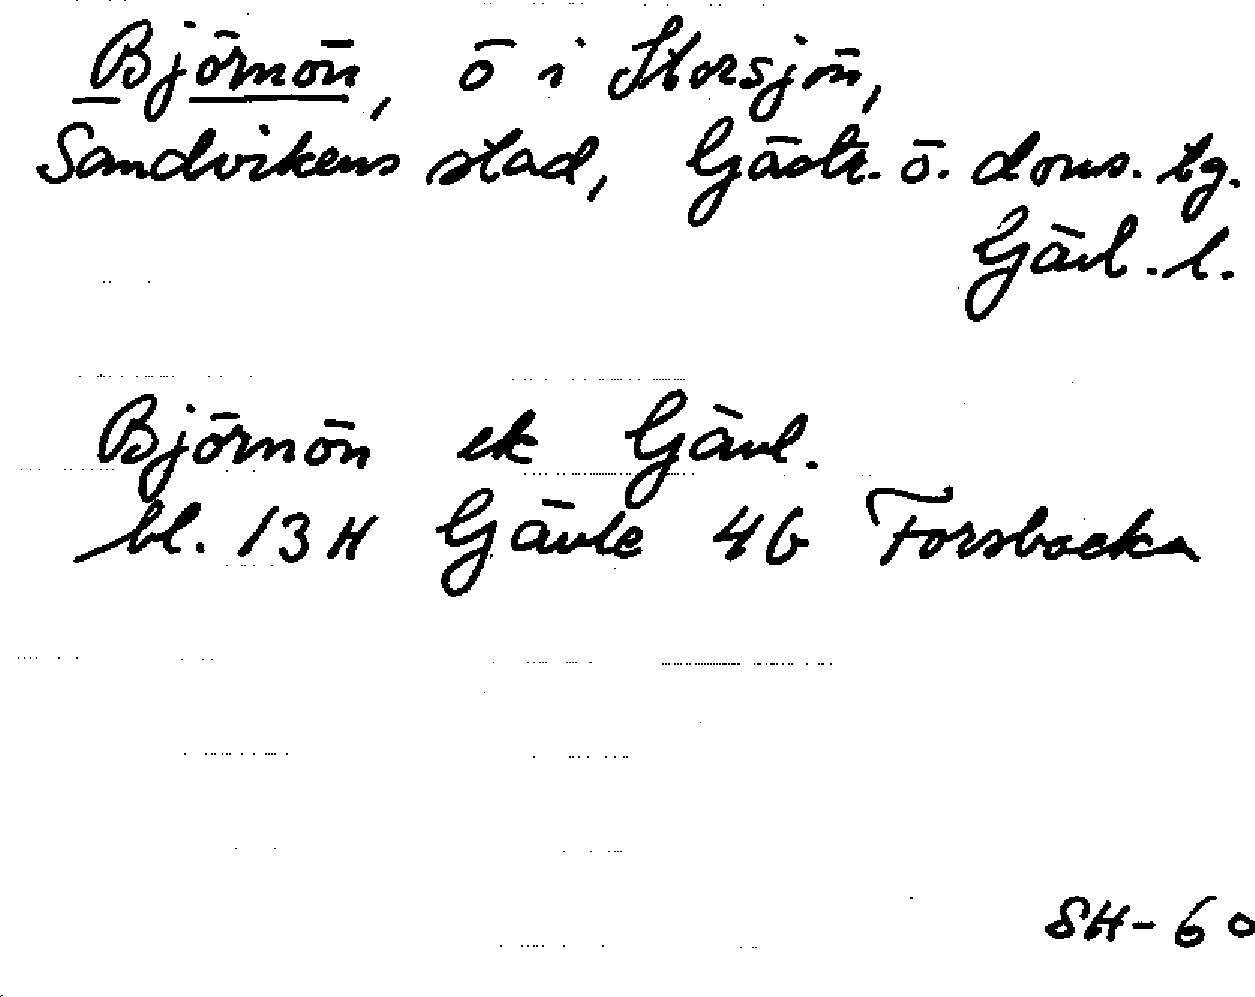 Björnön, ö i Storsjön,
Sandvikens stad, Gästr. ö. doms. tg.
Gävl. l.
Björnön ek Gävl.
bl. 13 H Gävle 4 b Forsbacka
SH-60